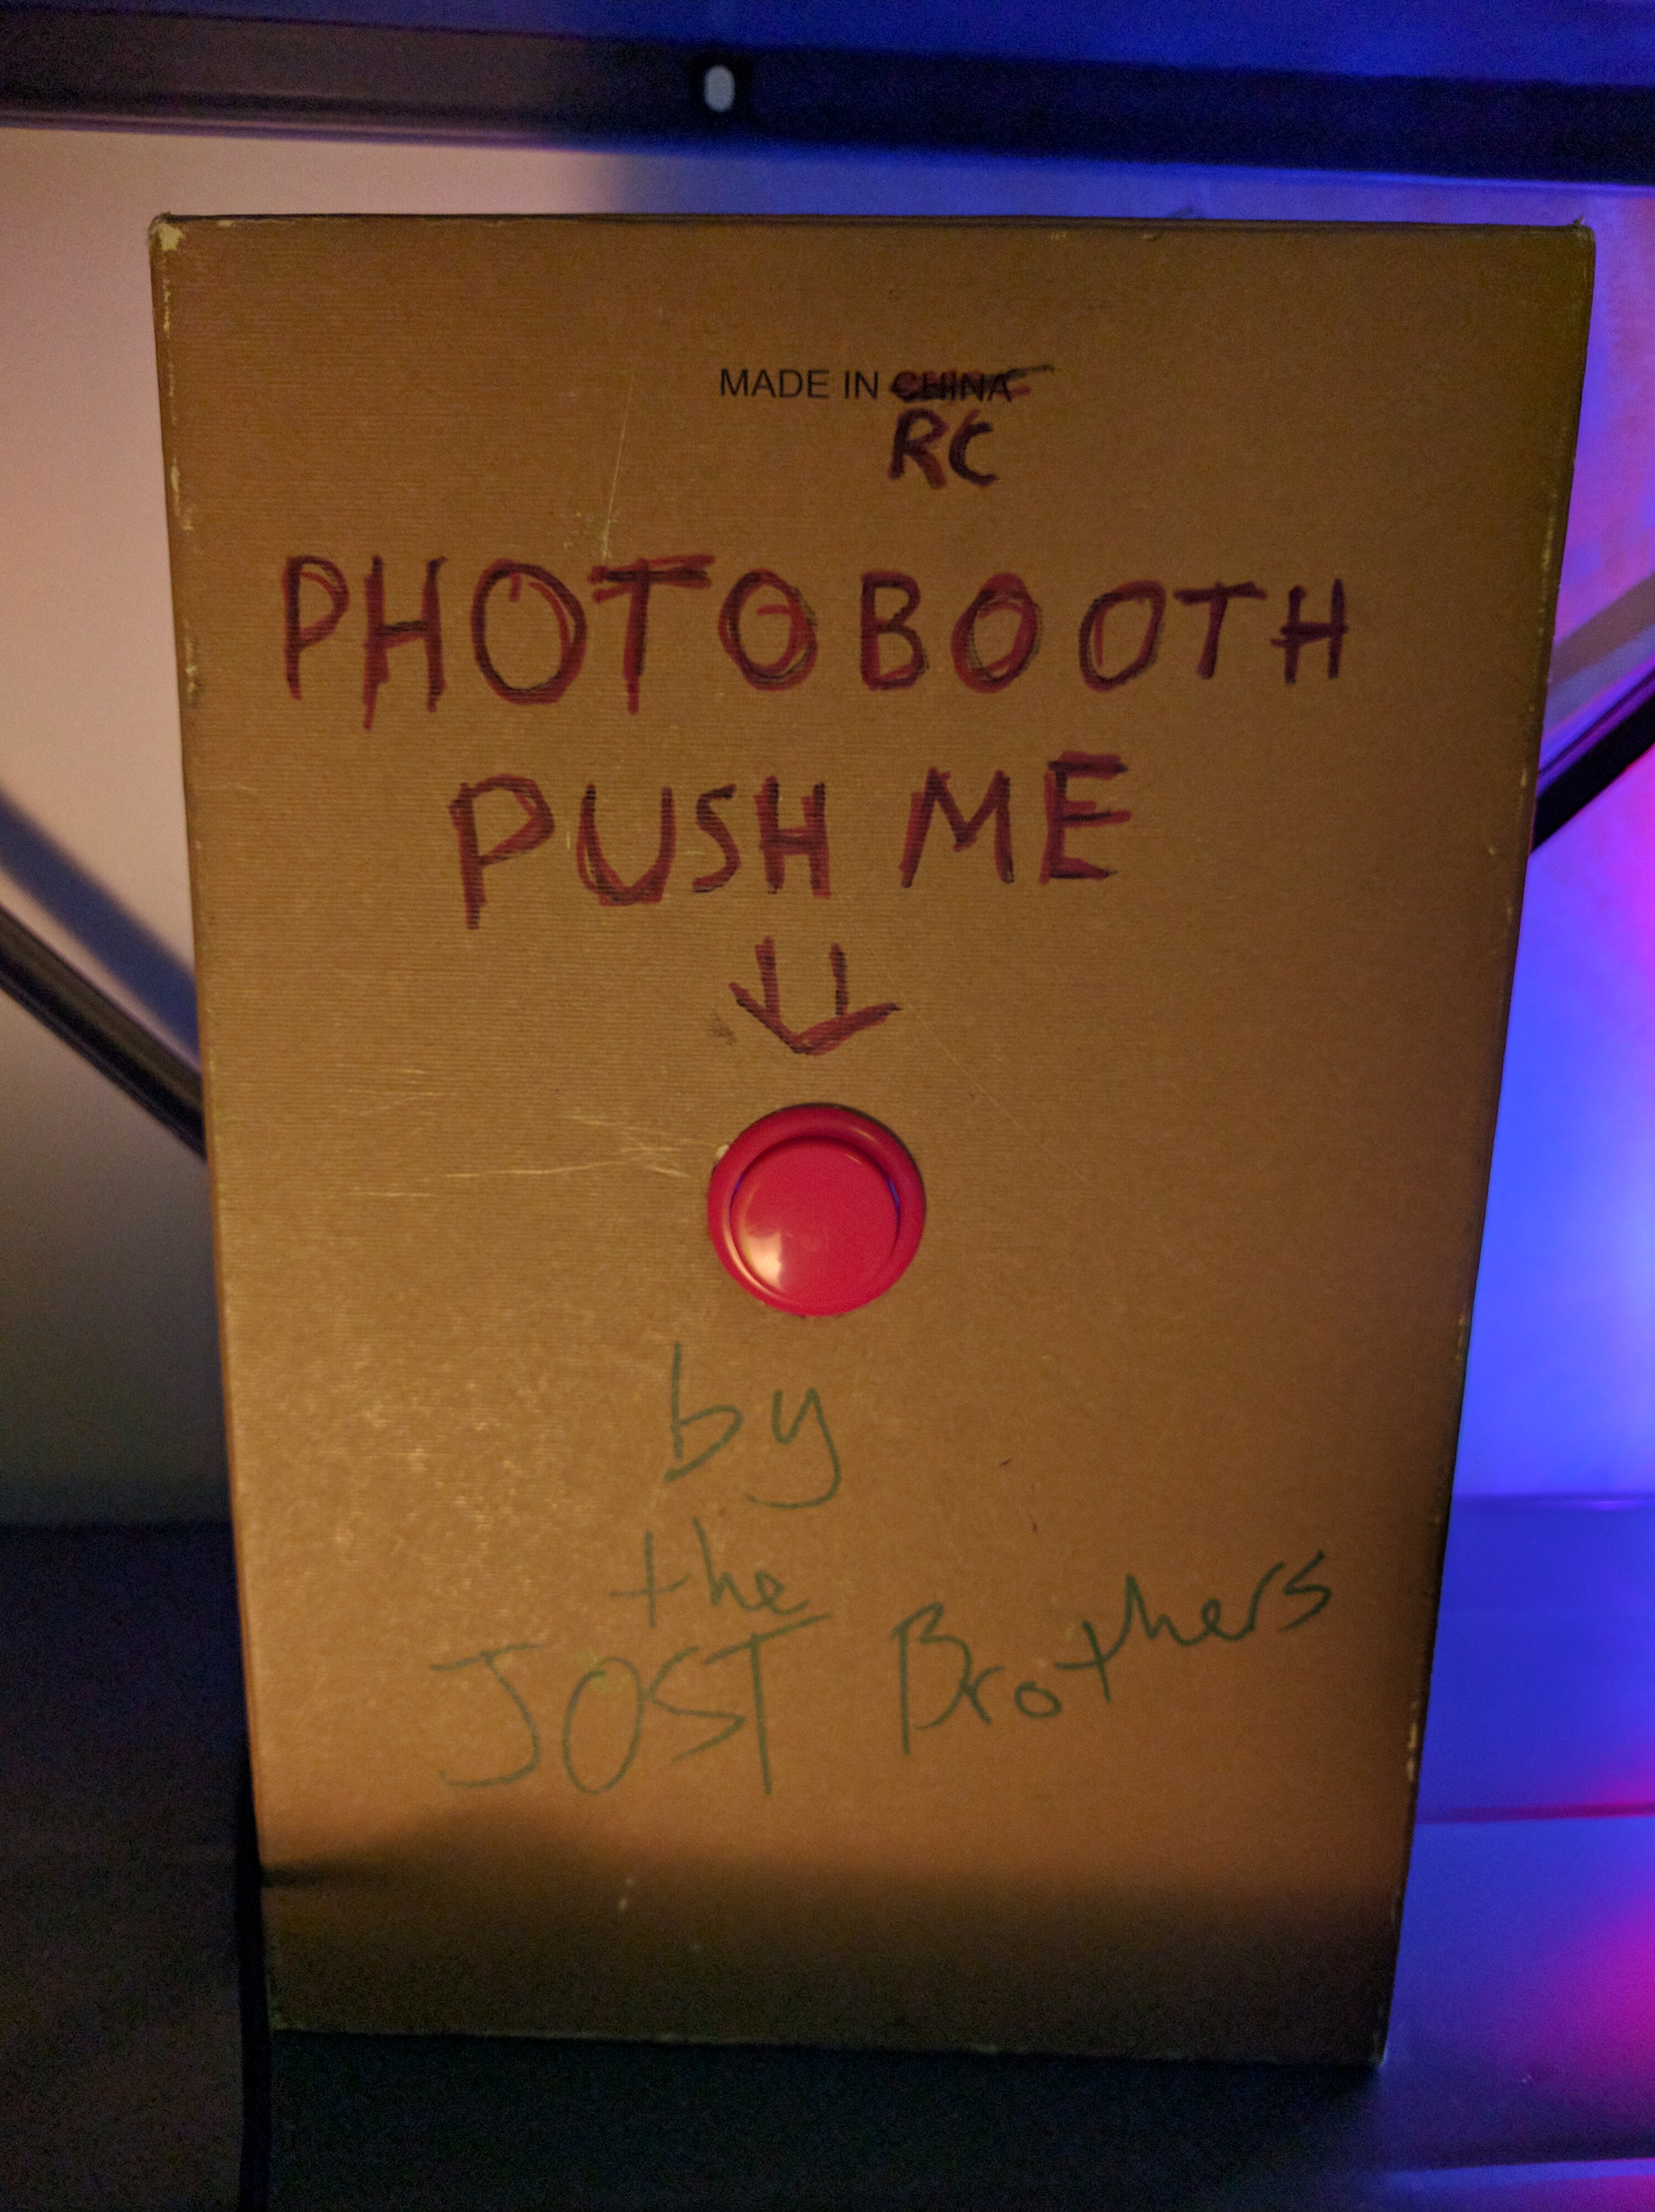 MADE IN CHINA
RC
PHOTOBOOTH
PUSH ME
by
the
JOST Brothers